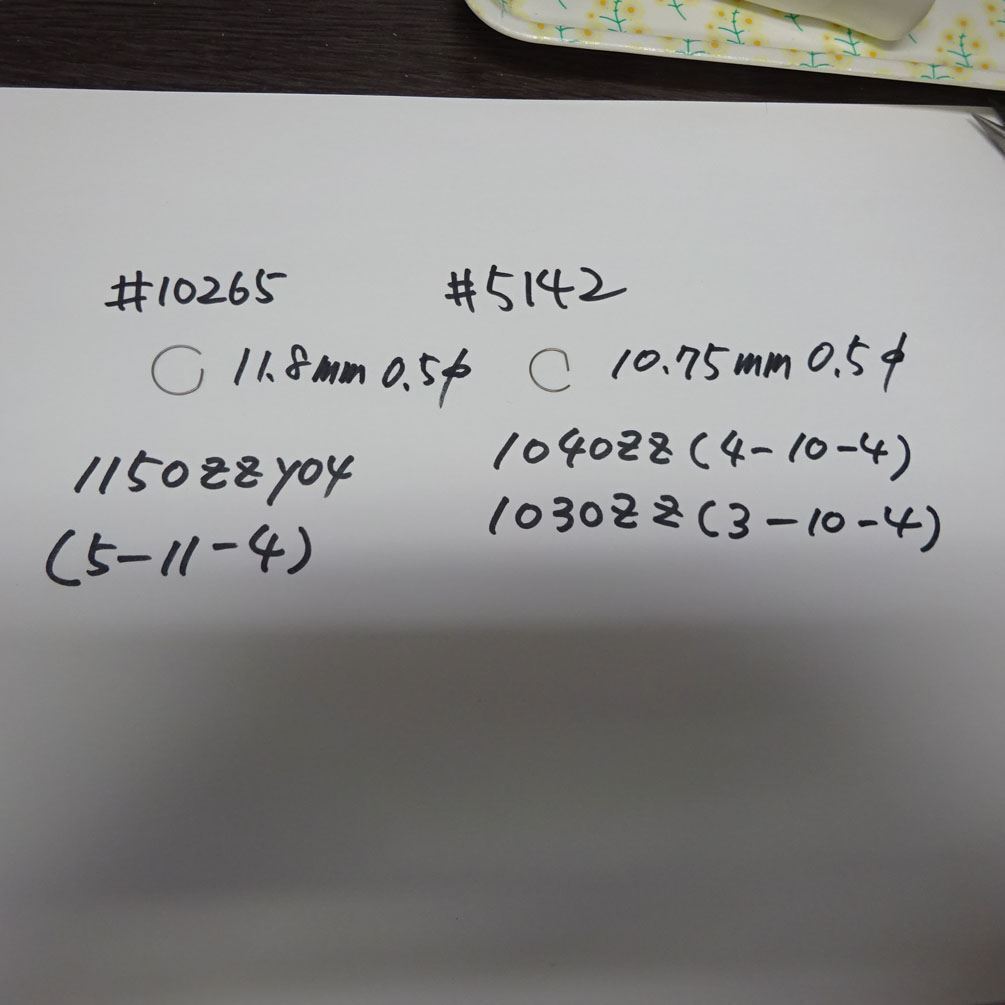 #10265
11.8mm 0.5φ
1150ZZY04
(5-11-4)
#5142
10.75mm 0.5φ
1040ZZ(4-10-4)
1030ZZ(3-10-4)